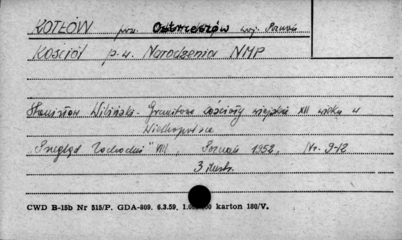 KOTŁÓW pow. Ostrzeszów woj. Poznań
Kościół p.w. Narodzenia NMP
Stanisław Wiliński - Granitowe kościoły wiejskie XII wieku w
Wielkopolsce
"Przegląd Zachodni" VIII, Poznań 1952, Nr. 9-12
3 ilustr.
CWD B-15b Nr 515/P. GDA-809. 6.3.59. karton 180/V.